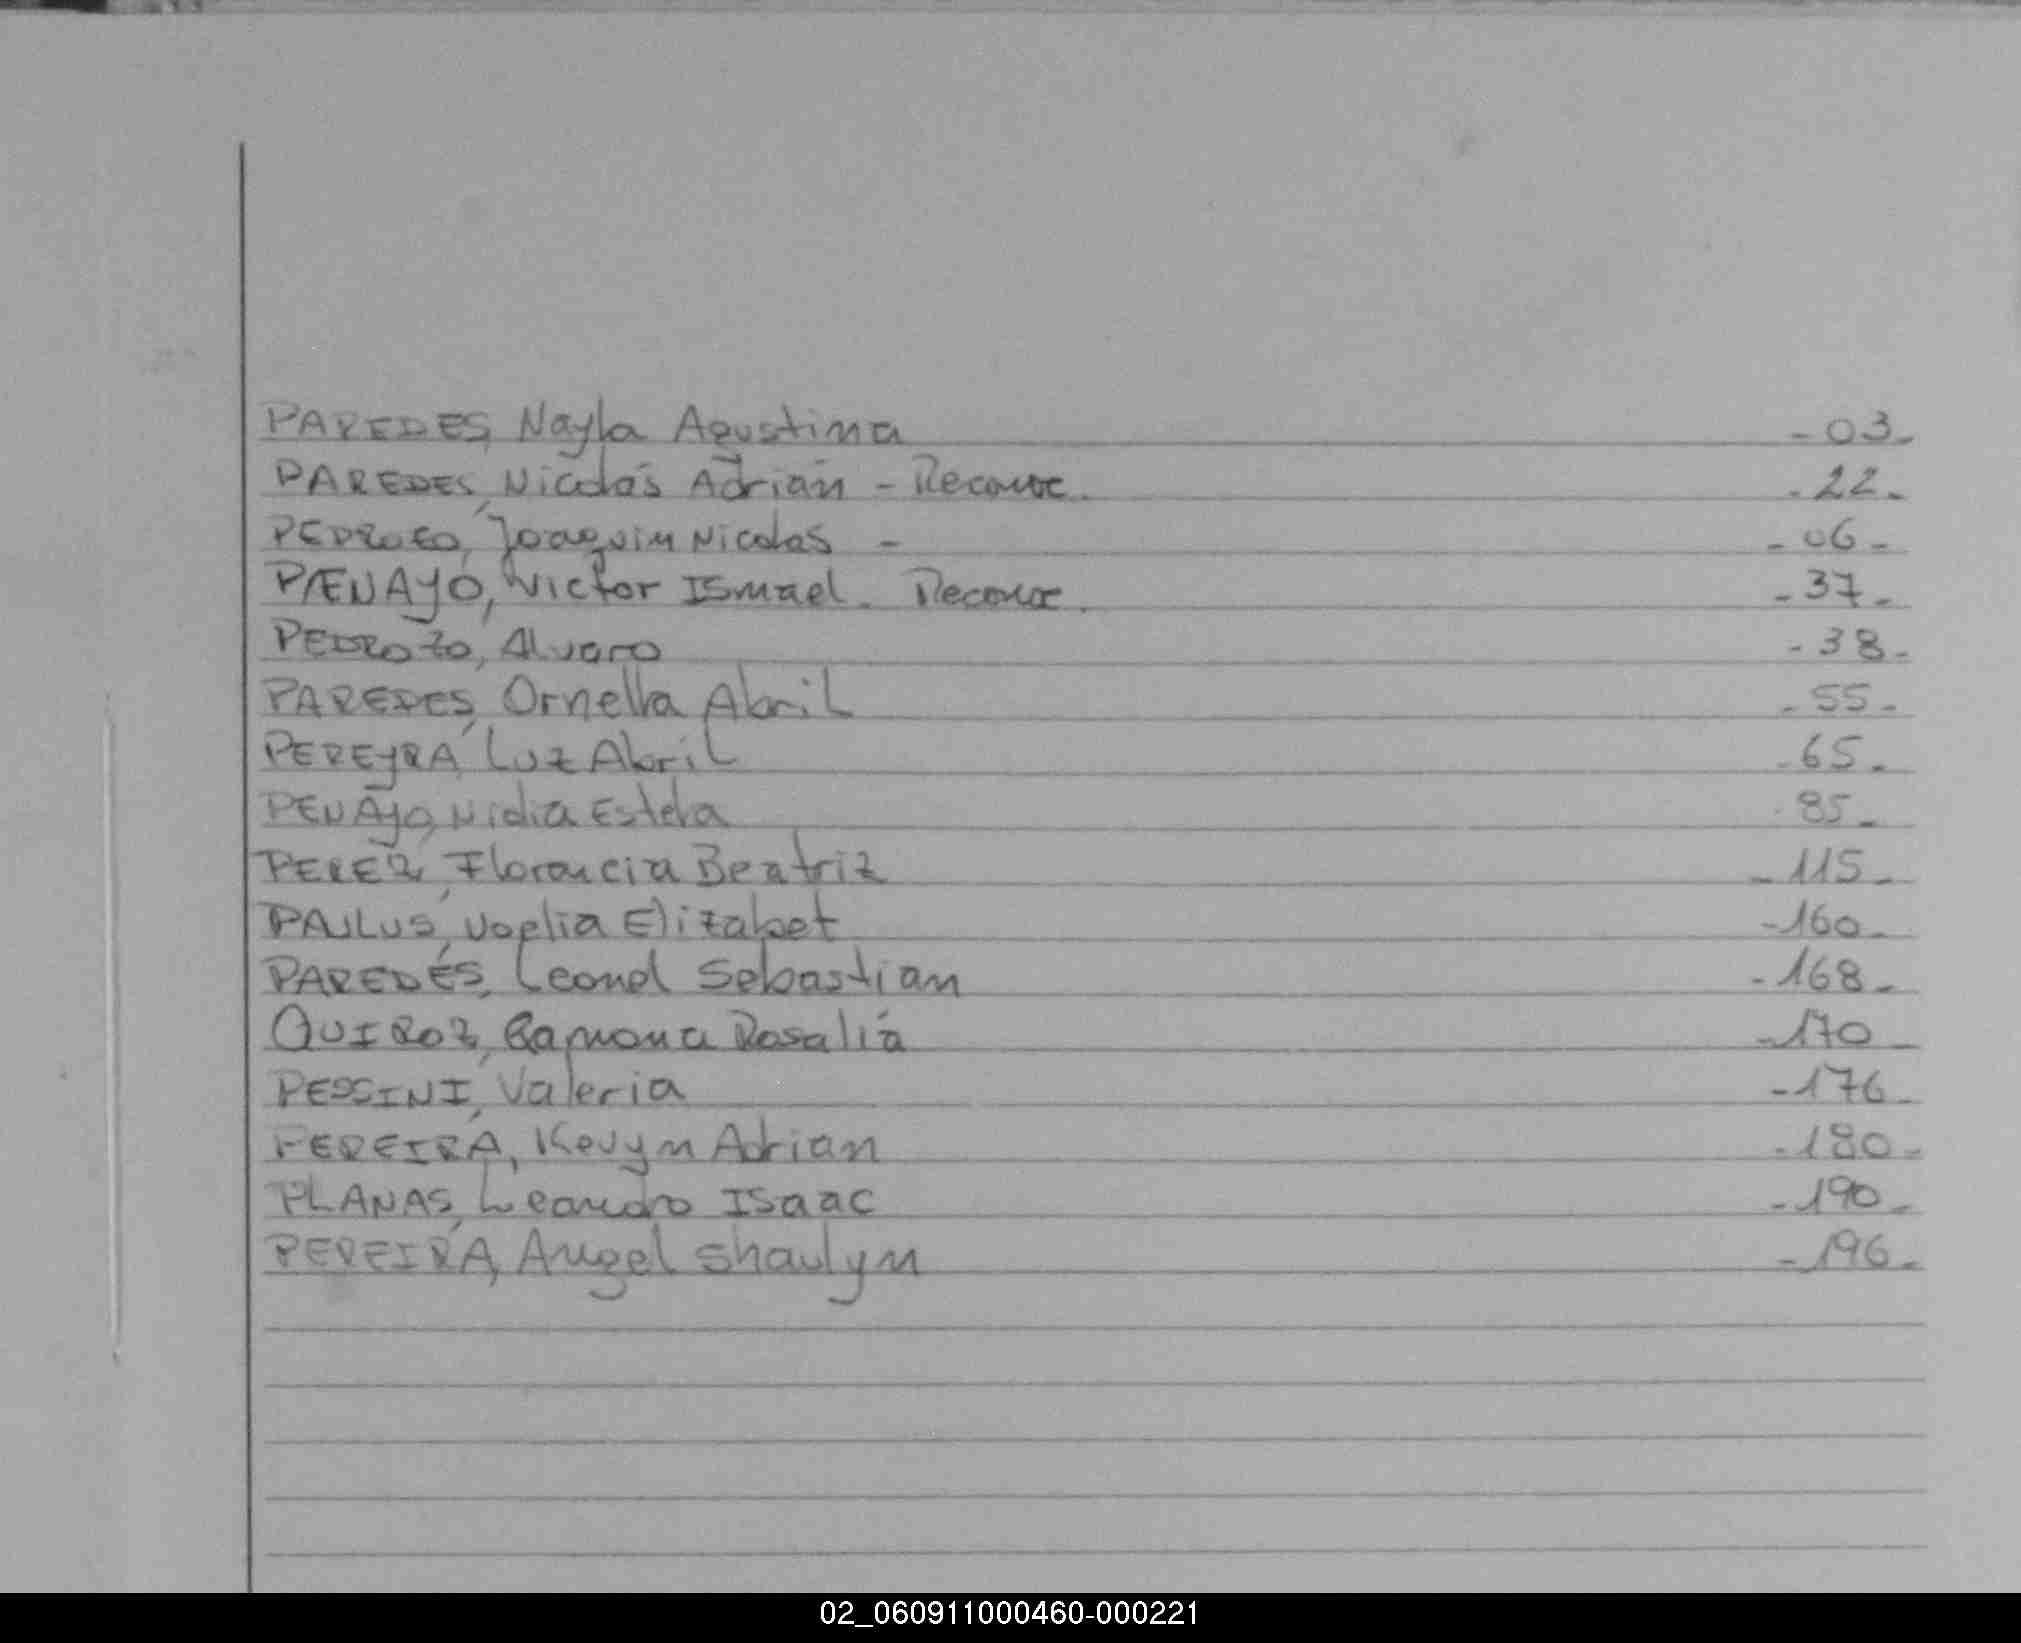 PAREDES, Nayla Agustina -03-
PAREDES, Nicolás Adrián - Reconoc. -22-
PEDROZO, Joaquim Nicolas - -06-
PAENAYO, Victor Ismael. Reconoc. -37-
PEDROZO, Alvaro -38-
PAREDES, Ornella Abril -55-
PEREYRA, Luz Abril -65-
PENAYO, Nidia Estela 85-
PEREZ, Florencia Beatriz -115-
Elizabet -160-
PAREDES, Leonel Sebastian -168-
QUIROZ, Ramona Rosalia -170-
PESSINI, Valeria -176-
PEREIRA, Kevyn Adrian -180-
PLANAS, Leandro Isaac -190-
PEREIRA, Angel Shaulyn -196-
02_060911000460-000221